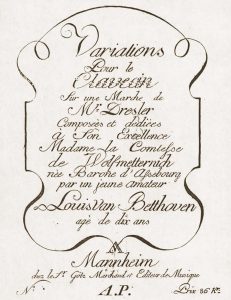 Variations
Pour le
Clavecin
Sur une Marche de
Mr. Dresler
Composés et dediées
à Son Excellence
Madame la Comtesse
de Wolfmetternich
née Barone d'Assebourg
par un jeune amateur
Louis van Betthoven
agé de dix ans
A
Mannheim
chez le Sr. Götz Marchand et Editeur de Musique
N.
A.P.
Prix 36 Kr.